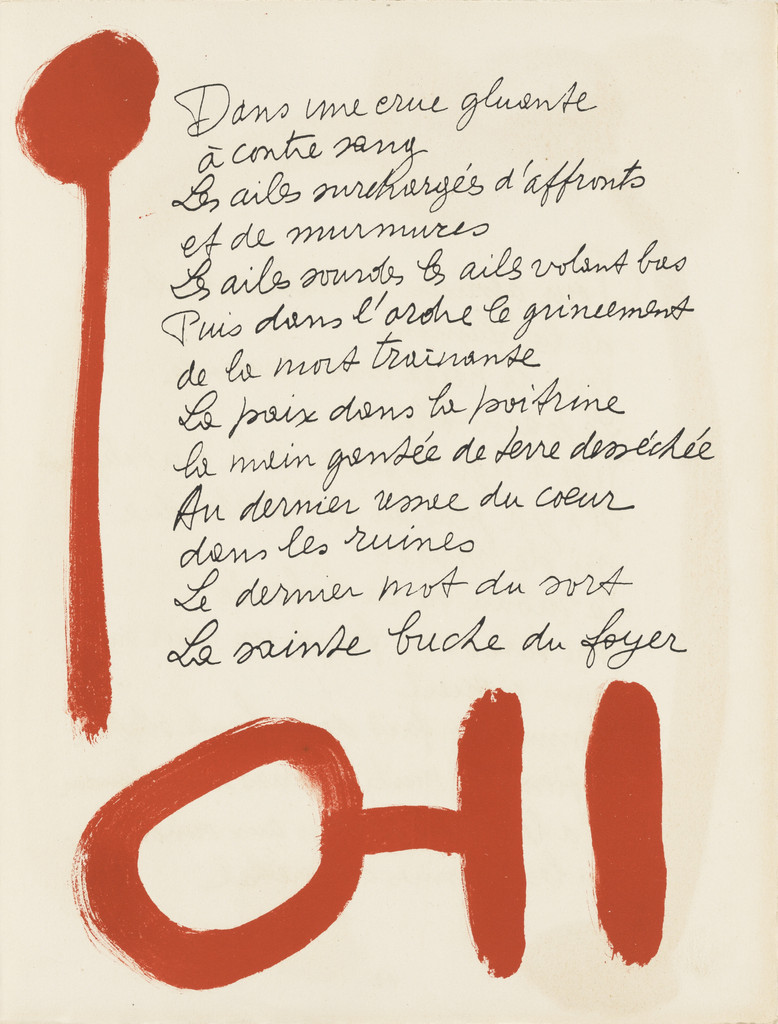 Dans une crue gluante
à contre sang
Les ailes surchargées d'affronts
et de murmures
Les ailes sourdes les ailes volant bas
Puis dans l'ordre le grincement
de la mort trainante
La paix dans la poitrine
la main gantée de terre desséchée
Au dernier ressac du coeur
dans les ruines
Le dernier mot du sort
La sainte buche du foyer